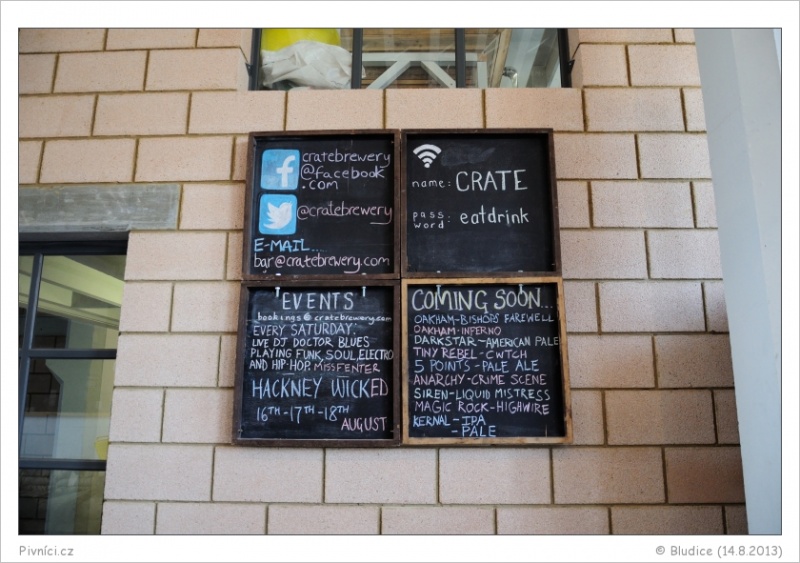 cratebrewery
@facebook
.com
@cratebrewery
E-MAIL...
bar@cratebrewery.com
name: CRATE
pass
word: eatdrink
EVENTS
bookings@cratebrewery.com
EVERY SATURDAY:
LIVE DJ DOCTOR BLUES
PLAYING FUNK, SOUL, ELECTRO
AND HIP-HOP. MISS FENTER
HACKNEY WICKED
16TH-17TH-18TH
AUGUST
COMING SOON...
OAKHAM-BISHOPS FAREWELL
OAKHAM-INFERNO
DARKSTAR-AMERICAN PALE
TINY REBEL-CWTCH
5 POINTS-PALE ALE
ANARCHY-CRIME SCENE
SIREN-LIQUID MISTRESS
MAGIC ROCK-HIGHWIRE
KERNAL-IPA
-PALE
Pivníci.cz
© Bludice (14.8.2013)